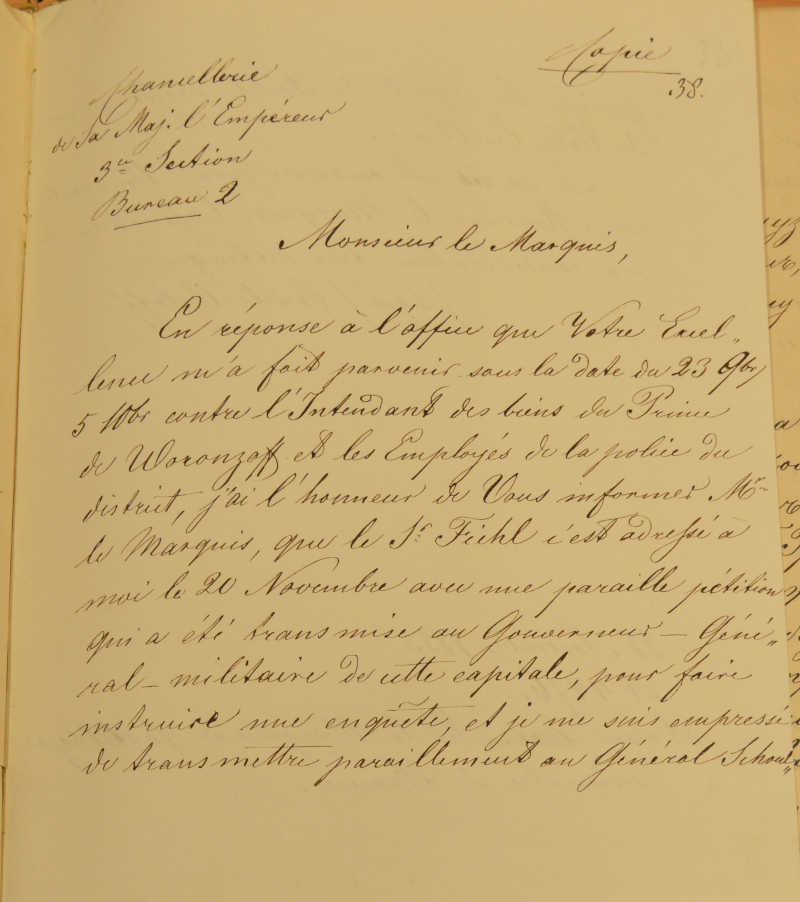 Copie
38.
Chancellerie
de Sa Maj. l'Empéreur
3me Section
Bureau 2
Monsieur le Marquis,
En réponse à l'office que Votre Excel„
lence m'a fait parvenir sous la date du 23 9br/
5 10br contre l'Intendant des biens du Prince
de Woronzoff et les Employés de la police du
district, j'ai l'honneur de Vous informer Mr
le Marquis, que le Sr. Fiehl c'est adressé à
moi le 20 Novembre avec une paraille pétition
qui a été transmise au Gouverneur – Géné„
ral – militaire de cette capitale, pour faire
instruire une enquête, et je me suis empressé
de transmettre paraillement au Général Schou„